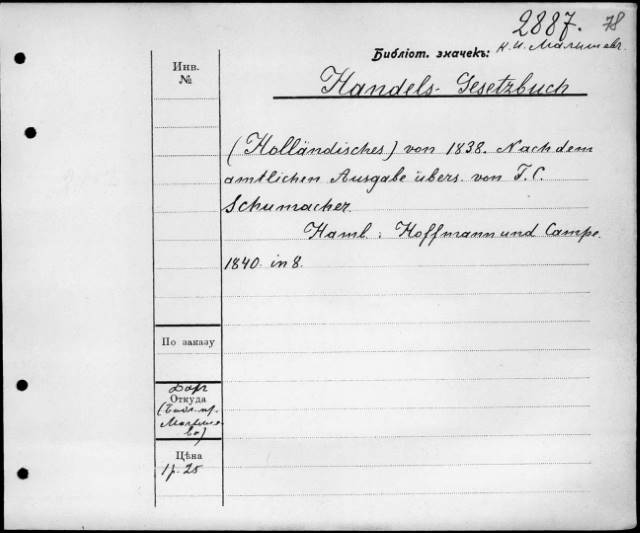 2887. 78
Библіот. значекъ: К. И. Малышев.
Инв.
№
Handels- Gesetzbuch
(Holländisches) von 1838. Nach dem
amtlichen Ausgabe übers. von J. C.
Schumacher.
Hamb.: Hoffmann und Campe.
1840. in 8.
По заказу
Дар
Откуда
(Библ. пр.
Малыше-
ва)
Цѣна
1 р. 25